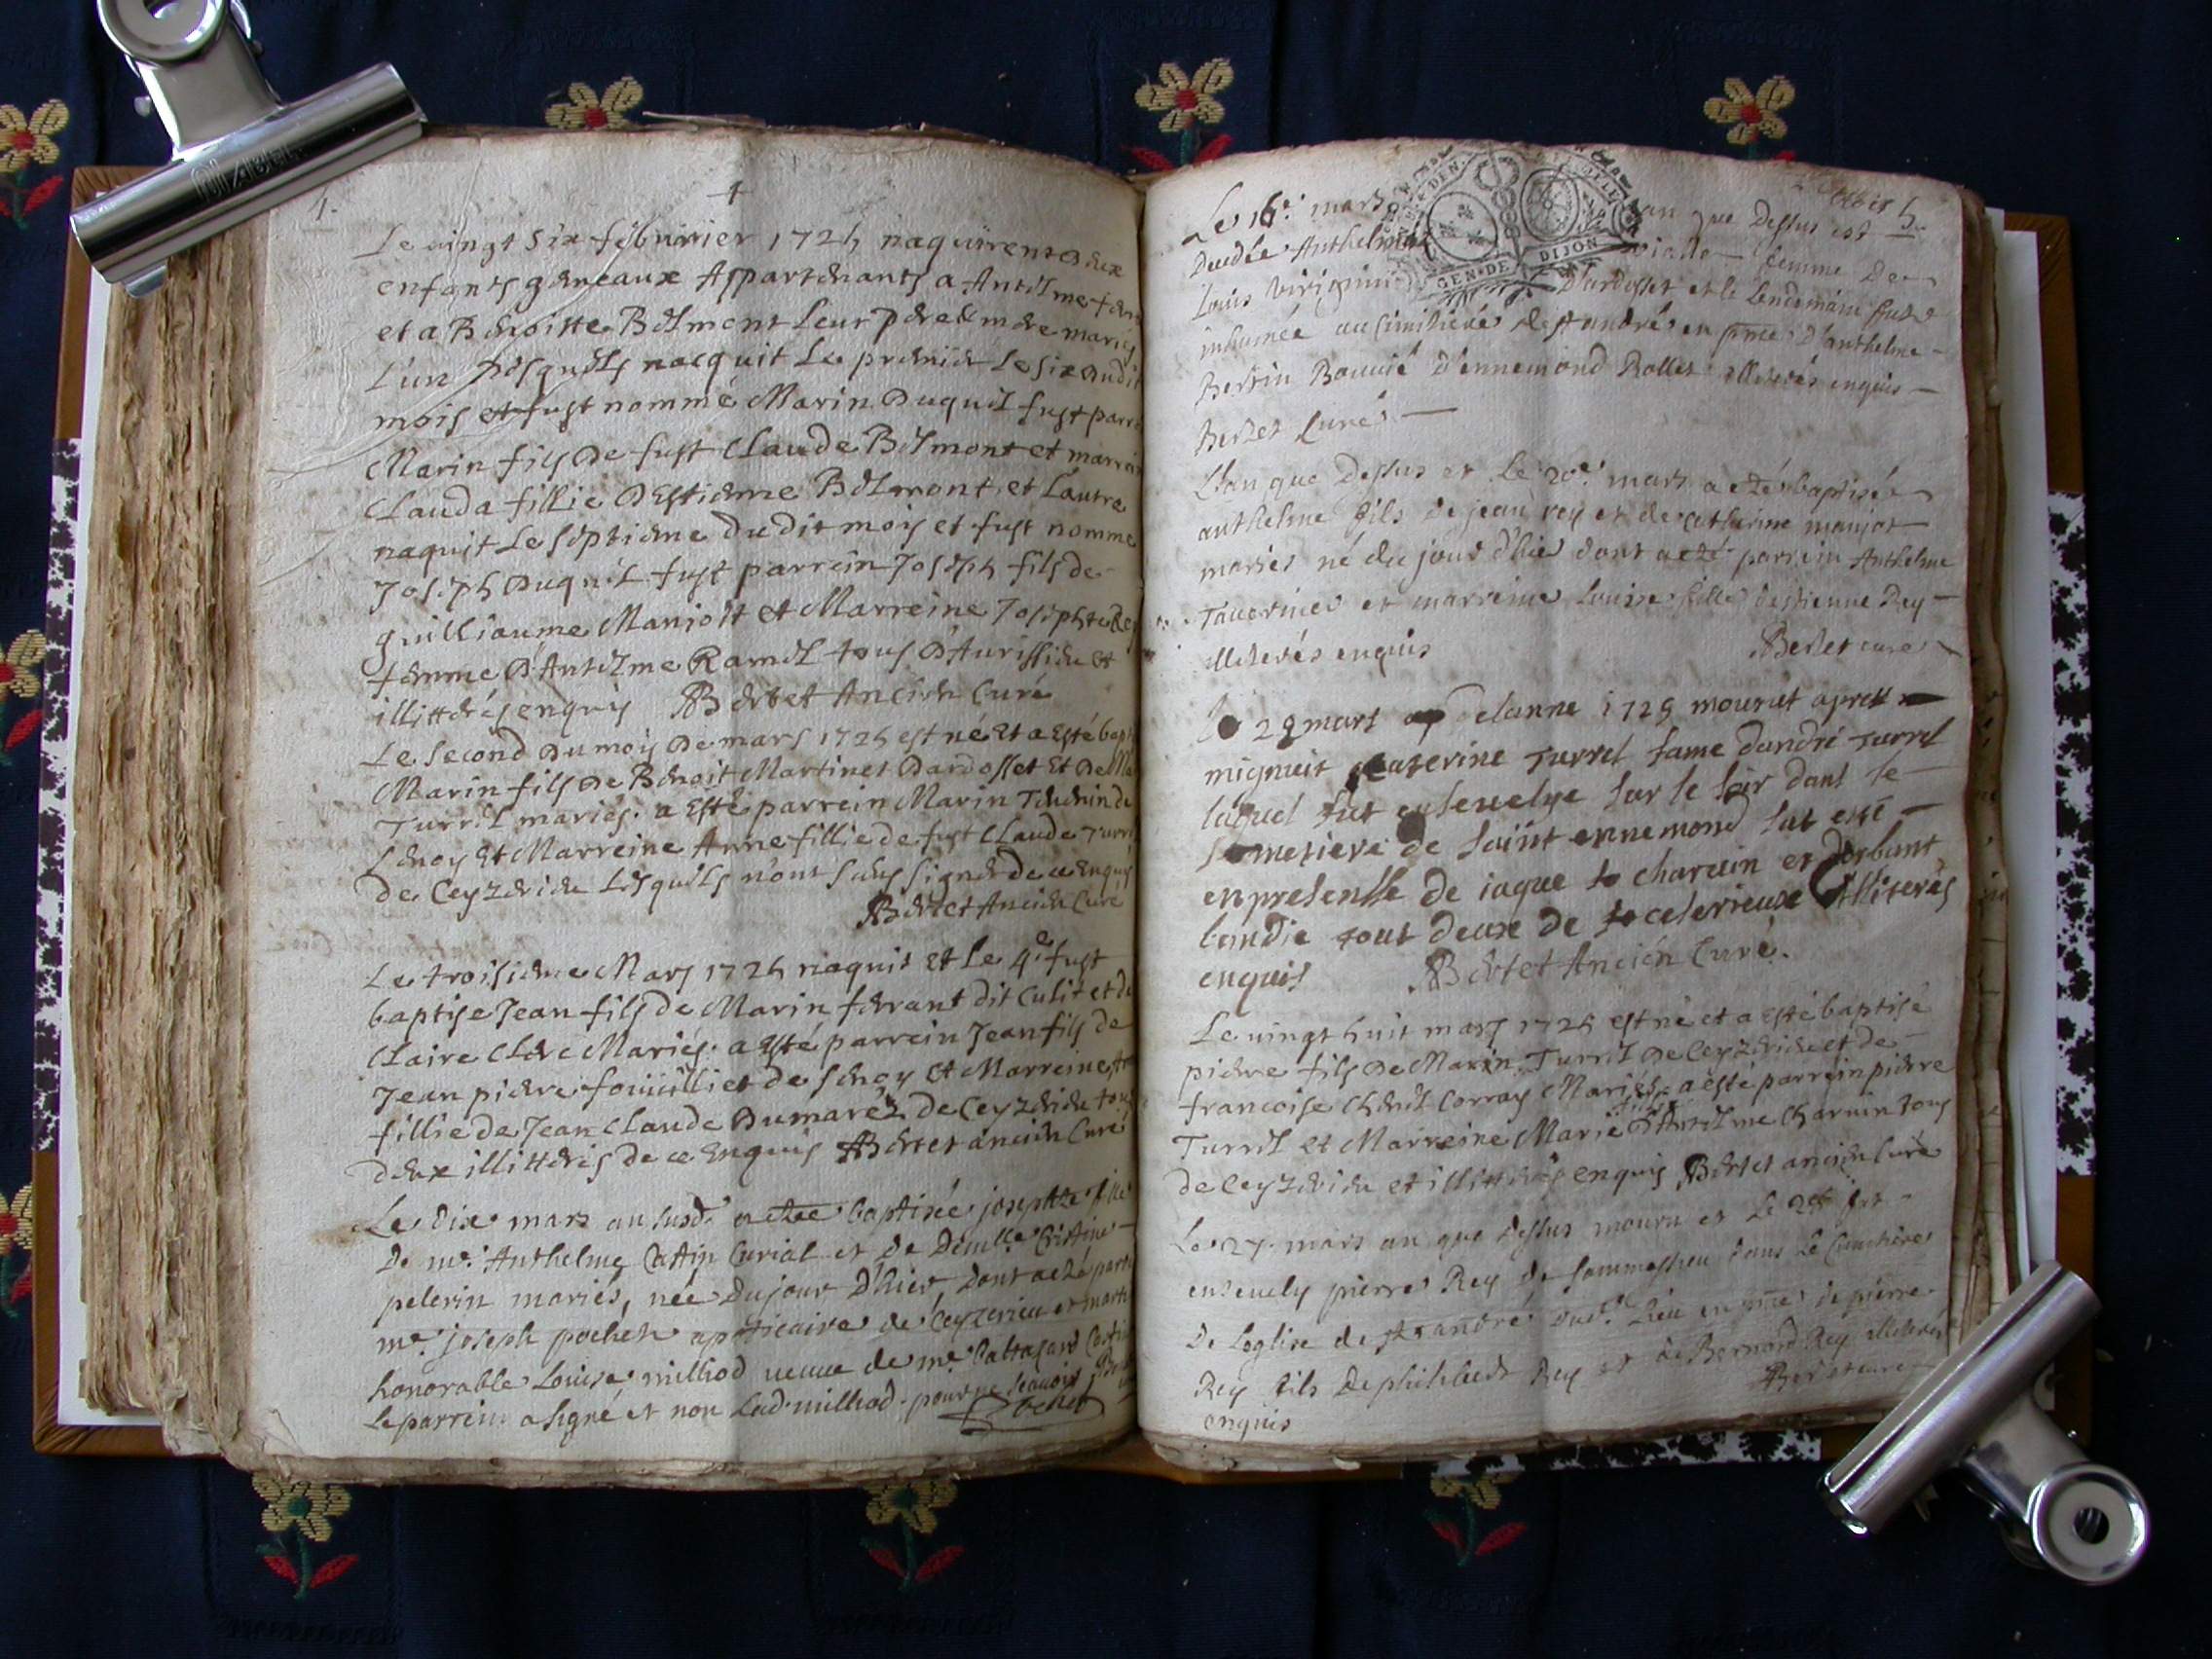 4.
Le vingt six febvrier 1725 naquirent deux
enfants gemeaux Appartenants a Antelme
et a Benoitte Belmont Leur pere & mere mariés
L'un desquels nacquit Le premier Le six dudit
mois et fust nommé Marin Duquel fust parr
Marin fils de fust Claude Belmont et marrei
Clauda fillie d'Estienne Belmont et Lautre
naquit Le septieme dudit mois et fust nomme
Joseph Duquel fust parrein Joseph fils de
guilliaume Manjott et Marreine Josephte Rey
femme d'Antelme Ramel tous d'Aurissieu et
illitterés enquis Bertet Ancien Curé
Le second du mois de mars 1725 est né Et a Esté bapt
Marin fils de Benoit Martinet dardosset Et de
Turrel mariés. a Esté parrein Marin Thevenin de
Lenoy Et Marreine Anne fillie de fust Claude Turrel
de Ceyzerieu Lesquels n'ont sceus signer de ce Enquis
Bertet Ancien Curé
Le troisieme Mars 1725 naquit Et Le 4e fust
baptise Jean fils de Marin ferrant dit Culit et de
Claire Clerc Mariés. a Esté parrein Jean fils de
Jean pierre fouillliet de senoy Et Marreine
fillie de Jean Claude Dumaréz de Ceyzerieu tous
deux illitterés de ce Enquis Bertet ancien Curé
Le dix mars an susd. a etee baptisée josephte fille
de me. Anthelme Castin Curial et de Demlle Cristine
pelerin mariés, née du jour d'hier, dont a eté parr
me. joseph pochet apoticaire de Ceyzerieu et marr
honorable Louise milliod veuve de me baltazard Castin
Le parrein a signé et non Lad. milliod pour ne scavoir
Pochet
5.
Le 16e. mars an que dessus est
Decedée Anthelmette femme de
Louis d'ardosset et le Lendemain fust
inhumée au cimitiere de st andré en pnce d'anthelme
Bertin Bouvié d'ennemond Rollet illiterés enquis
Bertet Curé
L'an que dessus et Le 20e. mars a eté baptisée
anthelme fils de jean rey et de catherine manjot
mariés né du jour d'hier dont a eté parrein Anthelme
Tavernier et marreine Louise fille d'estienne Rey
illiterés enquis Bertet curé
le 28 mars de lanne 1725 mourut apret
mignuit caterine Turrel fame dandré Turrel
laquel fut ensevelye sur le soir dant le
semetiere de saint ennemond fut esté
en presensse de iaque charvin et dorbant
bandie tout deux de ceserieux illiterés
enquis Bertet Ancién Curé.
Le vingt huit mars 1725 est né et a esté baptisé
pierre fils de Marin Turrel de Ceyzerieu et de
francoise Chenel Corray Mariés. a esté parrein pierre
Turrel et Marreine Marie d'Antelme Charvin tous
de Ceyzerieu et illitterés enquis Bertet ancien Curé
Le 27. mars an que dessus mouru et Le 28e fut
ensevely pierre Rey de sommesieu dans Le Cimitiere
De Leglise de st andré dud. Lieu en pnce de pierre
Rey fils de philibert Rey et de Bernard Rey illiterés
enquis Bertet curé
GEN. DE DIJON